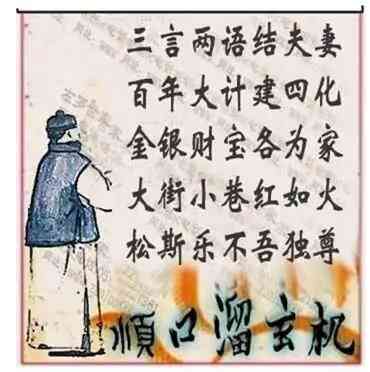 三言两语结夫妻
百年大计建四化
金银财宝各为家
大街小巷红如火
松斯乐不吾独尊
順口溜玄机